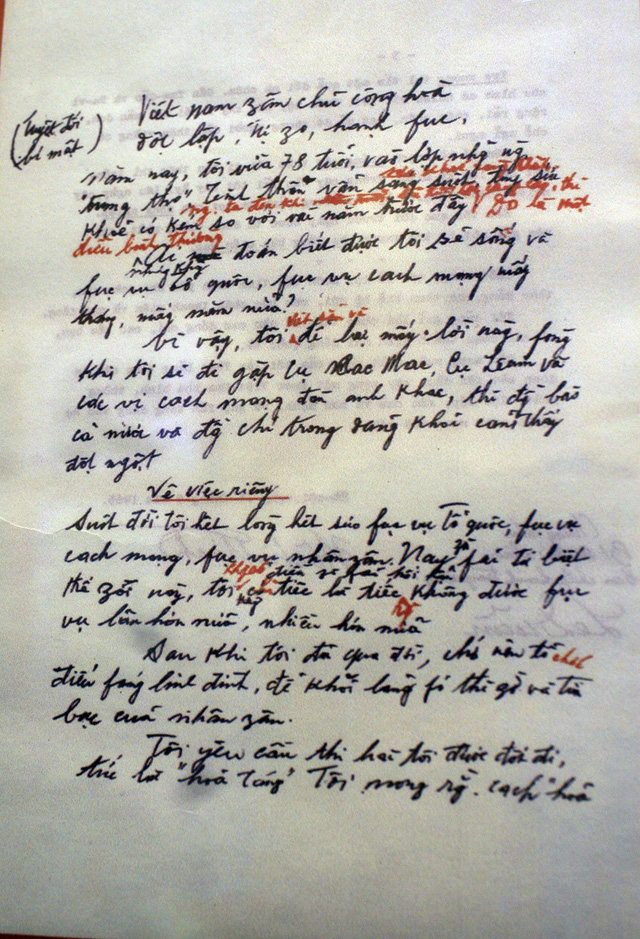 (Tuyệt đối
bí mật)
Việt nam zân chủ cộng hoà
độc lập, tự zo, hạnh fúc.
Năm nay, tôi vừa 78 tuổi, vào lớp những ng
"trung thọ". Tinh thần vẫn sáng suốt, tuy sức
khoẻ có kém so với vài năm trước đây. Đó là một
điều bình thường
Ai mà đoán biết được tôi sẽ sống và
fục vụ tổ quốc, fục vụ cách mạng mấy
tháng, mấy năm nữa?
Vì vậy, tôi viết sẵn về để lại mấy lời này, fòng
khi tôi sẽ đi gặp cụ Các Mác, cụ Lênin và
các vị cách mạng đàn anh khác, thì đồng bào
cả nước và đ/c chí trong đảng khỏi cảm thấy
đột ngột
Về việc riêng
Suốt đời tôi hết lòng hết sức fục vụ Tổ quốc, fục vụ
cách mạng, fục vụ nhân zân. Nay zù fải từ biệt
thế zới này, tôi không có điều gì fải hối hận
chỉ tiếc là tiếc không được fục
vụ lâu hơn nữa, nhiều hơn nữa
Sau khi tôi đã qua đời, chớ nên tổ chức
điếu fúng linh đình, để khỏi lãng fí thì giờ và tiền
bạc của nhân zân.
Tôi yêu cầu thi hài tôi được đốt đi,
tức là "hoả táng". Tôi mong rằng cách "hoả